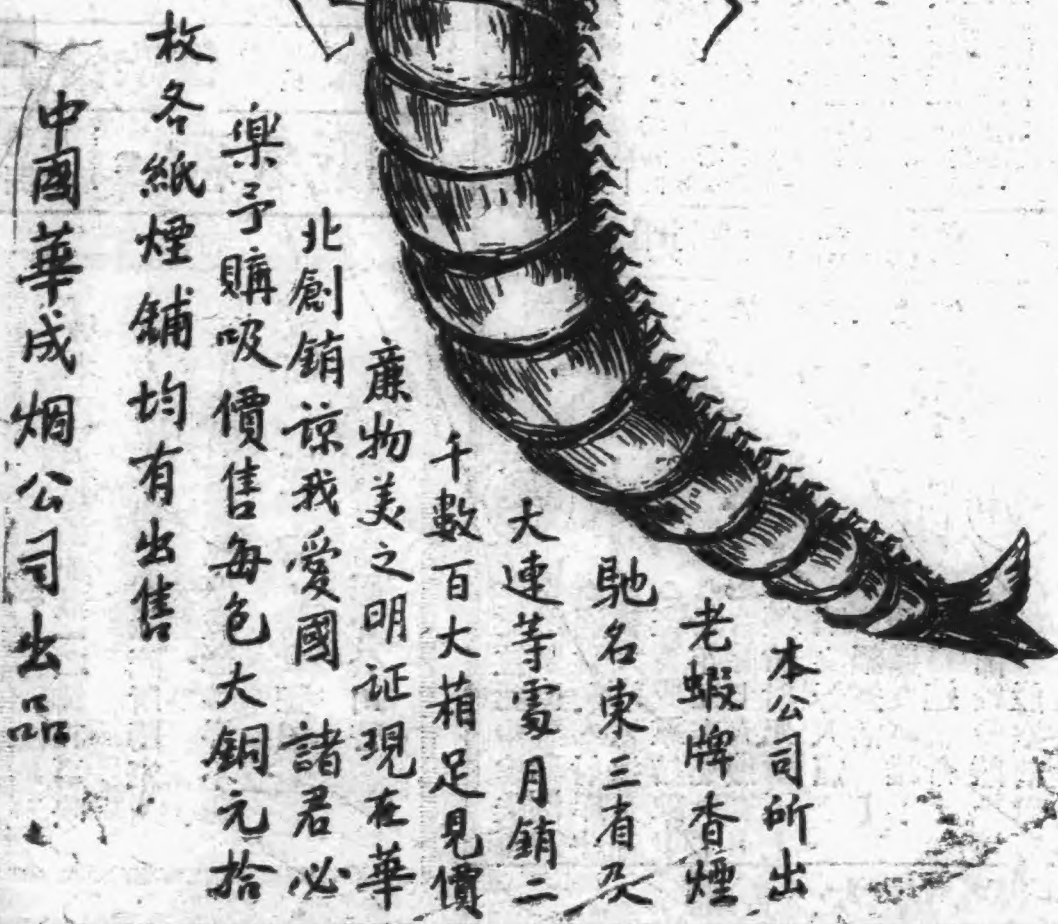 本公司所出
老蝦牌香煙
馳名東三省及
大連等處月銷二
千數百大箱足見價
廉物美之明証現在華
北創銷諒我愛國 諸君必
樂予購吸價售每包大銅元拾
枚各紙煙舖均有出售
中國華成烟公司出品